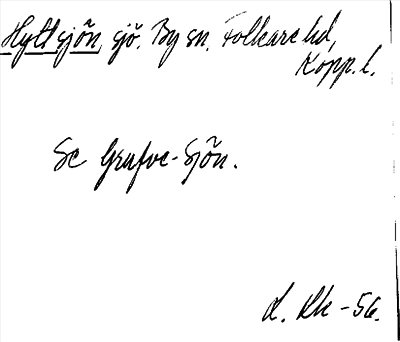 Hyttsjön, sjö. By sn. Folkare hd,
Kopp. l.
Se Grufve-Sjön.
d. Rk -56.